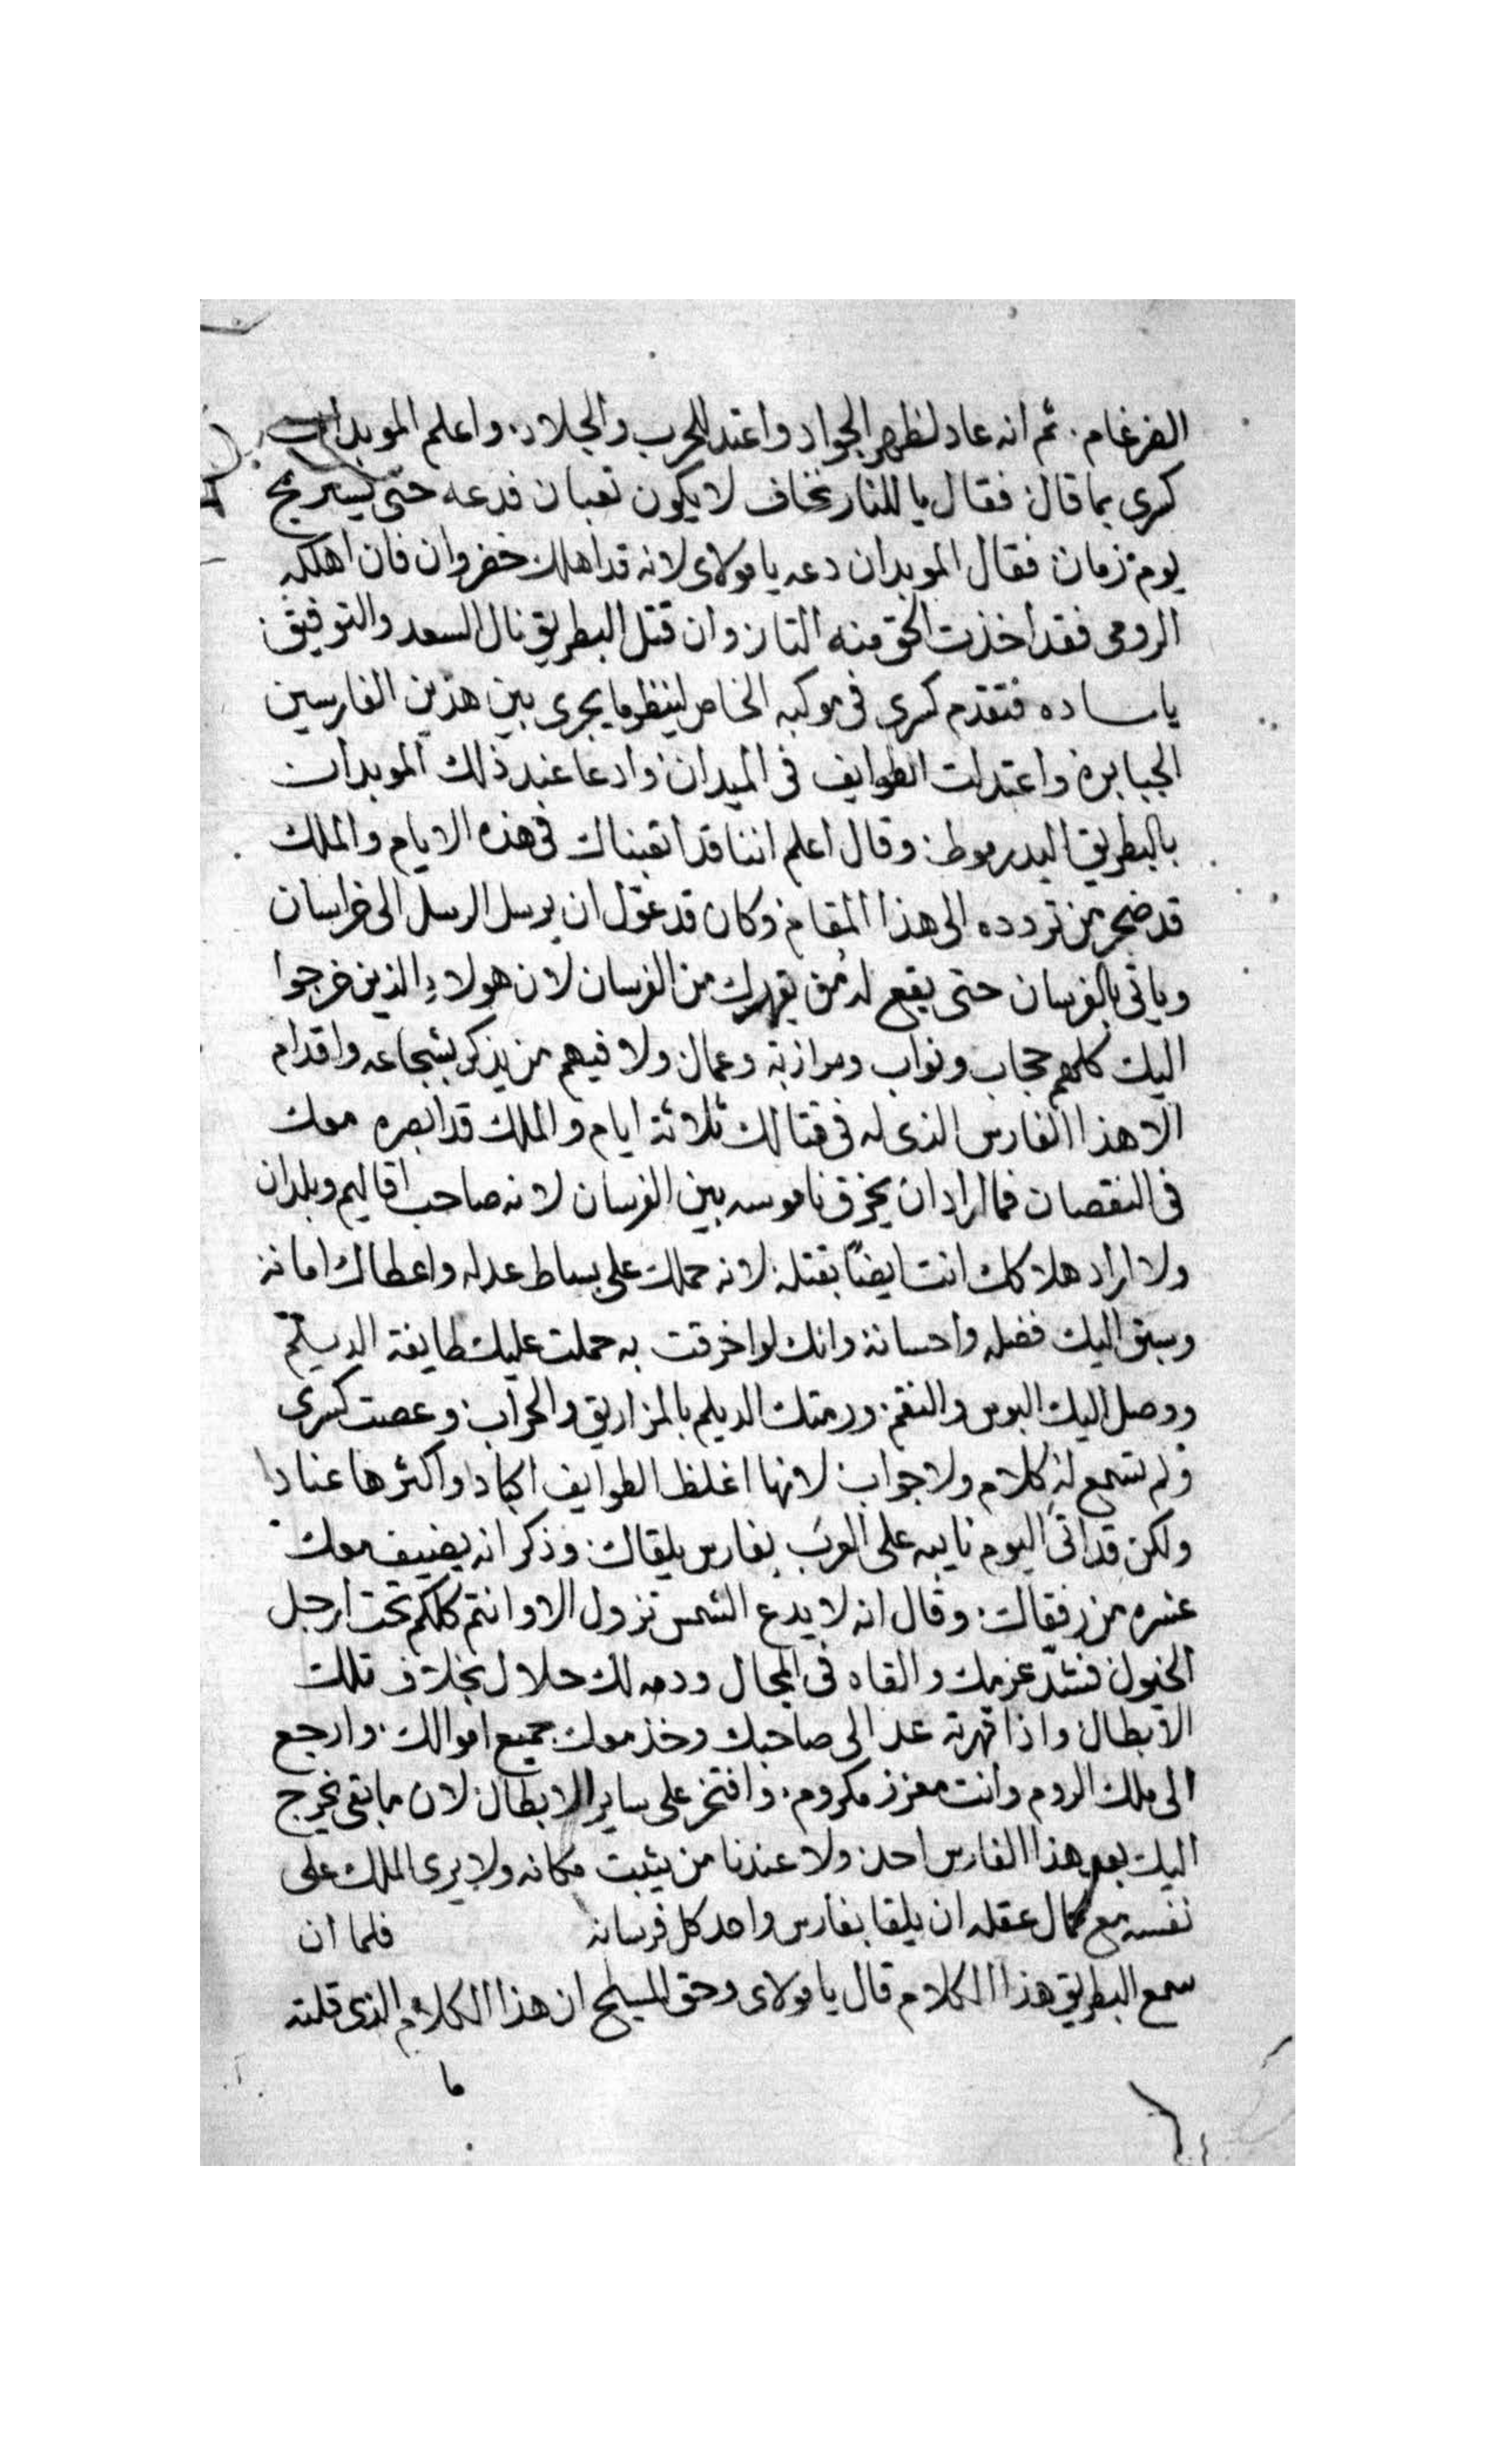 الضرغام. ثم انه عاد لظهر الجواد واعتد للحرب والجلاد. واعلم الموبدان
كسرى بما قال فقال يا للنار نخاف لا يكون تعبان فدعه حتى يستريح
يوم زمان فقال الموبدان دعه يا مولاى لانه قد اهلك خضروان فان اهلكه
الرومى فقد اخذت الحق منه النار وان قتل البطريق نال السعد والتوفيق
يا ساده فتقدم كسرى فى موكبه الخاص لينظر ما يجرى بين هذين الفارسين
الجبابره واعتدلت الطوايف فى الميدان وادعا عند ذلك الموبدان
بالبطريق البدرموط وقال اعلم اننا قد اتعبناك فى هذه الايام والملك
قد ضجر من تردده الى هذا المقام وكان قد عول ان يرسل الرسل الى خراسان
وياتى بالفرسان حتى يقع له من يقهرك من الفرسان لان هولاء الذين خرجوا
اليك كلهم حجاب ونواب ومرازبة وعمال ولا فيهم من يذكر بشجاعه واقدام
الا هذا الفارس الذى له فى قتالك ثلاثة ايام والملك قد ابصره معك
فى النقصان فما اراد ان يخرق ناموسه بين الفرسان لانه صاحب اقاليم وبلدان
ولا اراد هلاكك انت ايضًا بقتله لانه حملك على بساط عدله واعطاك امانه
وسبق اليك فضله واحسانه وانك لو اخرقت به حملت عليك طايفة الديلم
ووصل اليك البوس والنقم ورمتك الديلم بالمزاريق والحراب وعصت كسرى
ولم تسمع له كلام ولا جواب لانها اغلظ الطوايف اكبادا واكثرها عنادا
ولكن قد اتى اليوم نايبه على العرب بفارس يلقاك وذكر انه يضيف معك
عشره من رفقاك وقال انه لا يدع الشمس تزول الا وانتم كلكم تحت ارجل
الخيول فشدّ عزمك والقاه فى المجال ودمه لك حلال بخلاف تلك
الابطال واذا قهرته عد الى صاحبك وخذ معك جميع اموالك وارجع
الى ملك الروم وانت معزز مكروم. وافتخر على ساير الابطال لان ما بقى يخرج
اليك بعد هذا الفارس احد ولا عندنا من يثبت مكانه ولا يرى الملك على
نفسه مع كمال عقله ان يلقا بفارس واحد كل فرسانه فلما ان
سمع البطريق هذا الكلام قال يا مولاى وحق المسيح ان هذا الكلام الذى قلته
ما